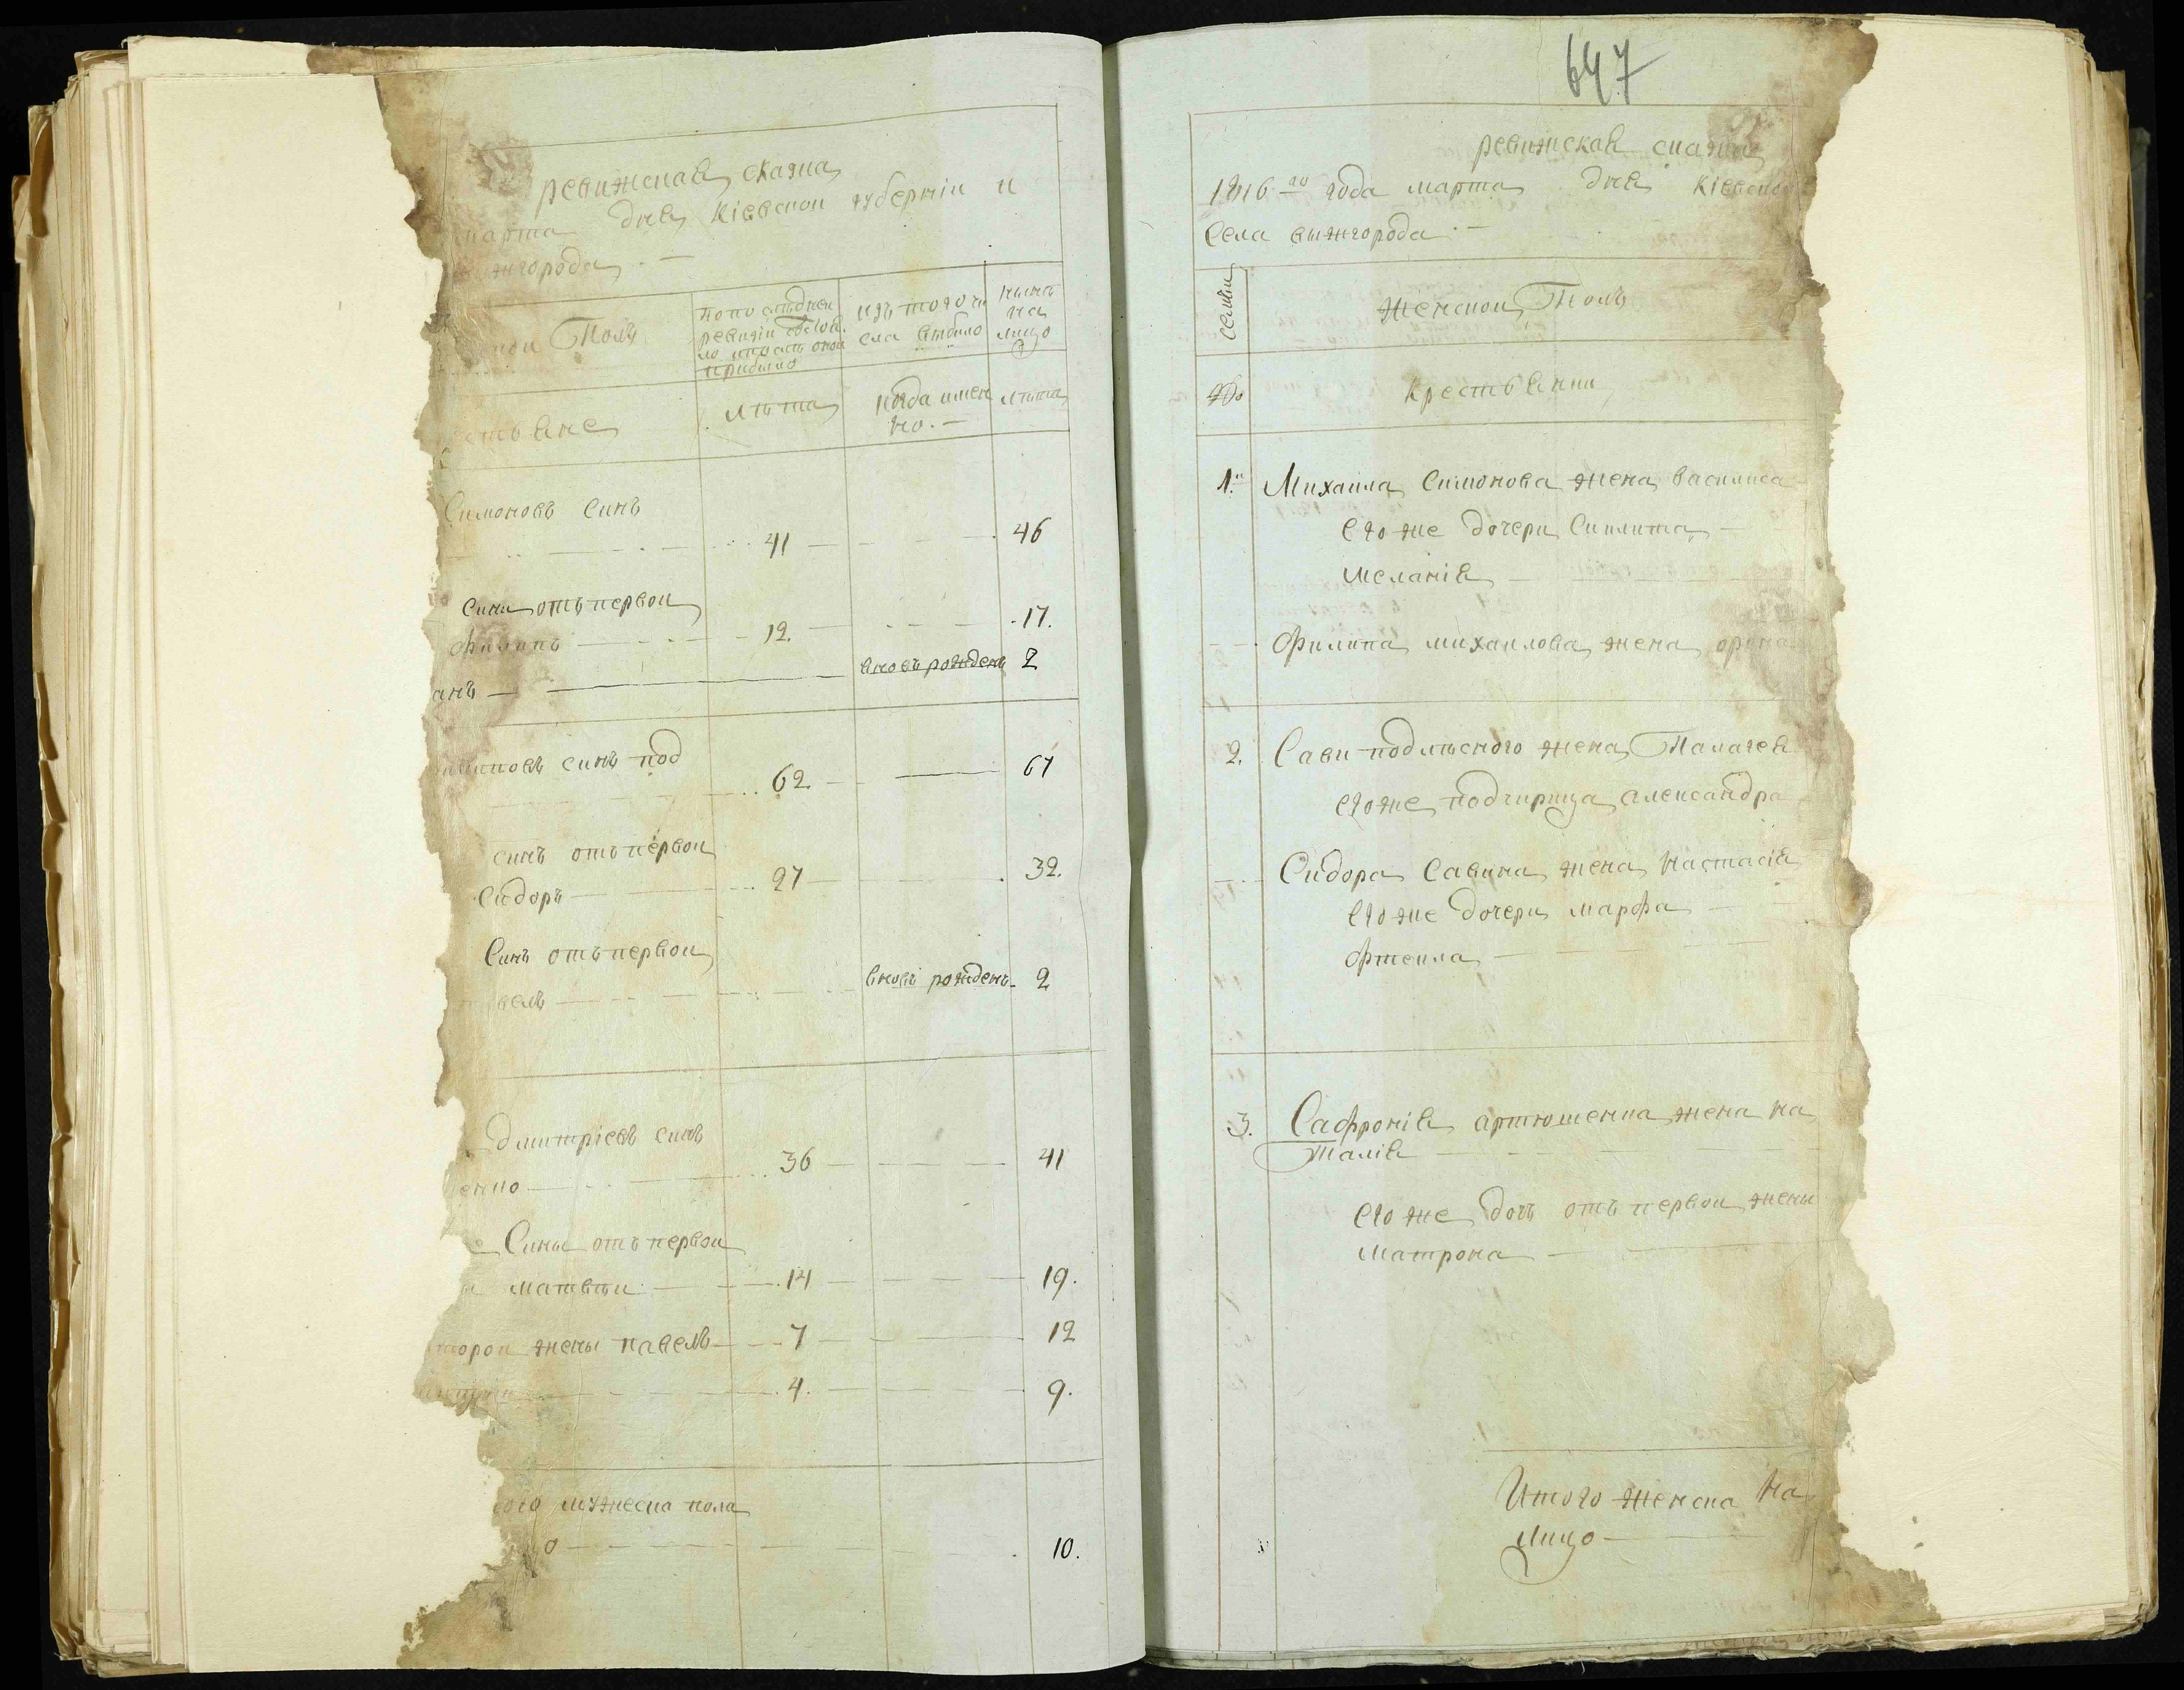 ревижская сказка
марта дня Кіевской губерніи и
жгорода. —
Полъ
по последней ревизіи состояло и после оной прибыло
изъ того числа выбыло
ныне на лицо
лета
когда имен
но. —
лета
Симоновъ синъ
41 46
сини отъ первои
Филипъ 12. 17.
анъ — вновь рожденъ 2
синъ под
62 67
синъ отъ первои
Сидоръ 27 32.
Синъ отъ первои
велъ вновь рожденъ 2
Дмитріевъ синъ
енко 36 41
Сины отъ первои
матвѣи 14 19.
торои жены павелъ 7 12
4. 9.
ого мужеска пола
о 10.
647
ревижская сказка
1816го года марта дня Кіевской
села вижгорода. —
семьи
Женской Полъ
№
крестьянки
1.й Михаила Симонова жена василиса
его же дочери
меланія
Филипа михаилова жена орина
2. Сави подлѣсного жена Палагея
его же подчирица александра
Сидора Савина жена настасія
его же дочери марфа
3. Сафронія артюшенка жена на
талія
его же дочь отъ первои жены
матрона
Итого женска на
лицо